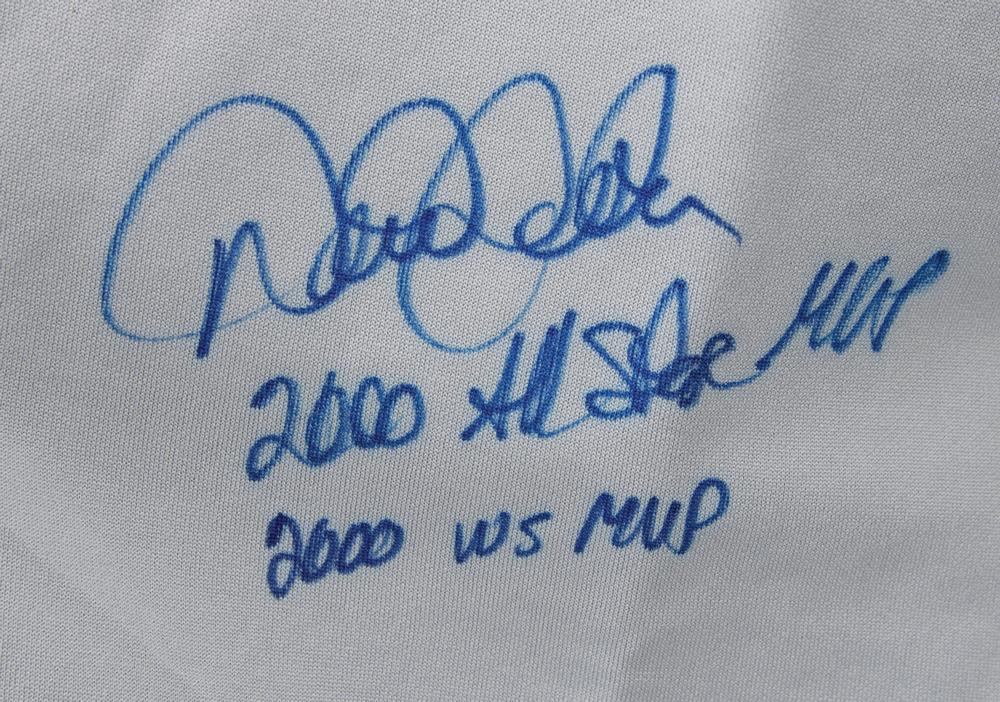 Derek Jeter
2000 All Star MVP
2000 WS MVP